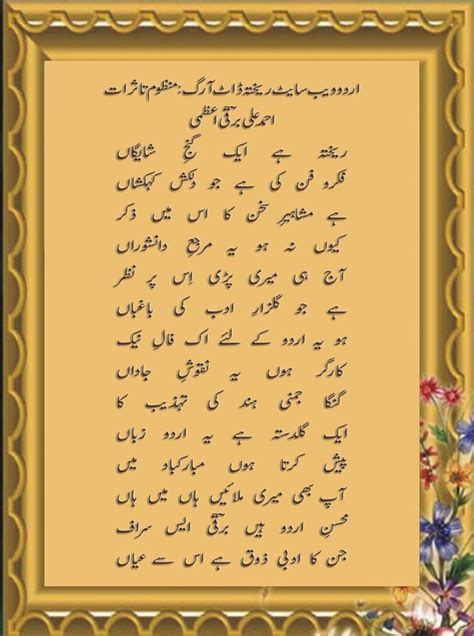 اردو ویب سایٹ ریختہ ڈاٹ آرگ : منظوم تاثرات
احمد علی برقیؔ اعظمی
ریختہ ہے ایک گنجِ شایگاں
فکر و فن کی ہے جو دلکش کہکشاں
ہے مشاہیرِ سخن کا اس میں ذکر
کیوں نہ ہو یہ مرجعِ دانشوراں
آج ہی میری پڑی اِس پر نظر
ہے جو گلزارِ ادب کی باغباں
ہو یہ اردو کے لئے اک فالِ نیک
کارگر ہوں یہ نقوشِ جاداں
گنگا جمنی ہند کی تہذیب کا
ایک گلدستہ ہے یہ اردو زباں
پیش کرتا ہوں مبارکباد میں
آپ بھی میری ملائیں ہاں میں ہاں
محسنِ اردو ہیں برقیؔ ایس سراف
جن کا ادبی ذوق ہے اس سے عیاں